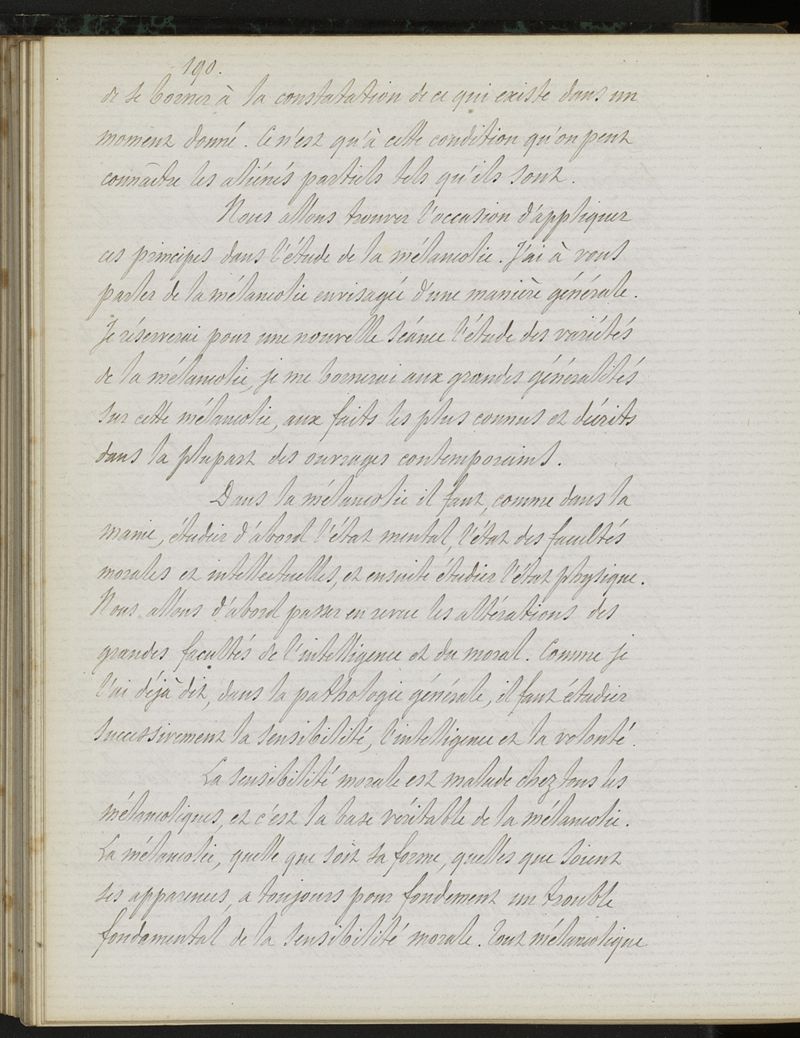 190.
de se borner à la constatation de ce qui existe dans un
moment donné. Ce n'est qu'à cette condition qu'on peut
connaître les aliénés partiels tels qu'ils sont.
Nous allons trouver l'occasion d'appliquer
ces principes dans l'étude de la mélancolie. J'ai à vous
parler de la mélancolie envisagée d'une manière générale.
Je réserverai pour une nouvelle séance l'étude des variétés
de la mélancolie, je me bornerai aux grandes généralités
sur cette mélancolie, aux faits les plus connus et décrits
dans la plupart des ouvrages contemporains.
Dans la mélancolie il faut, comme dans la
manie, étudier d'abord l'état mental, l'état des facultés
morales et intellectuelles, et ensuite étudier l'état physique.
Nous allons d'abord passer en revue les altérations des
grandes facultés de l'intelligence et du moral. Comme je
l'ai déjà dit, dans la pathologie générale, il faut étudier
successivement la sensibilité, l'intelligence et la volonté.
La sensibilité morale est malade chez tous les
mélancoliques, et c'est la base véritable de la mélancolie.
La mélancolie, quelle que soit sa forme, quelles que soient
ses apparences, a toujours pour fondement un trouble
fondamental de la sensibilité morale. Tout mélancolique